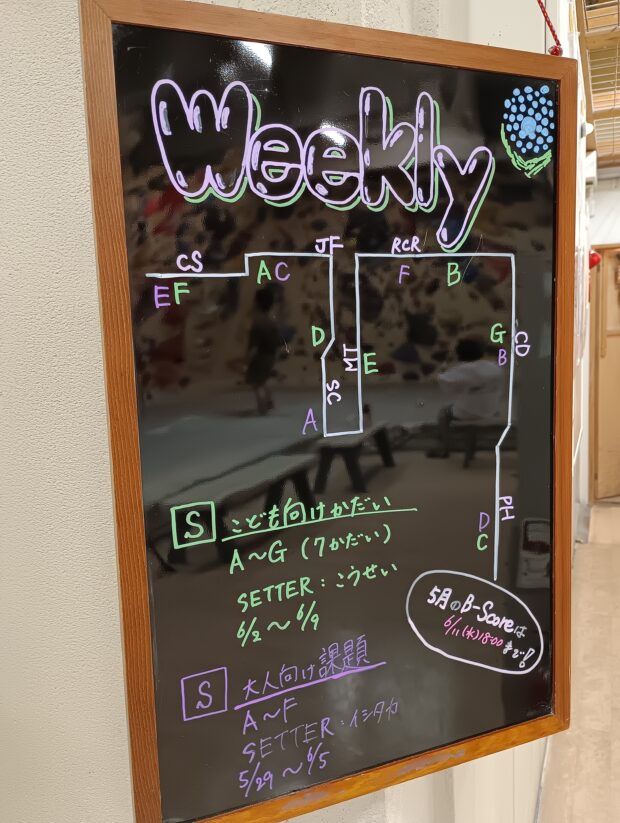 Weekly
CS
JF
RCR
EF
AC
F
B
D
TM
E
G
CD
B
SC
A
PH
D
C
S こども向けかだい
A～G (7かだい)
SETTER:こうせい
6/2～6/9
5月のB-Scoreは
6/11(水)18:00
まで!
S 大人向け課題
A～F
SETTER:イシタカ
5/29～6/5